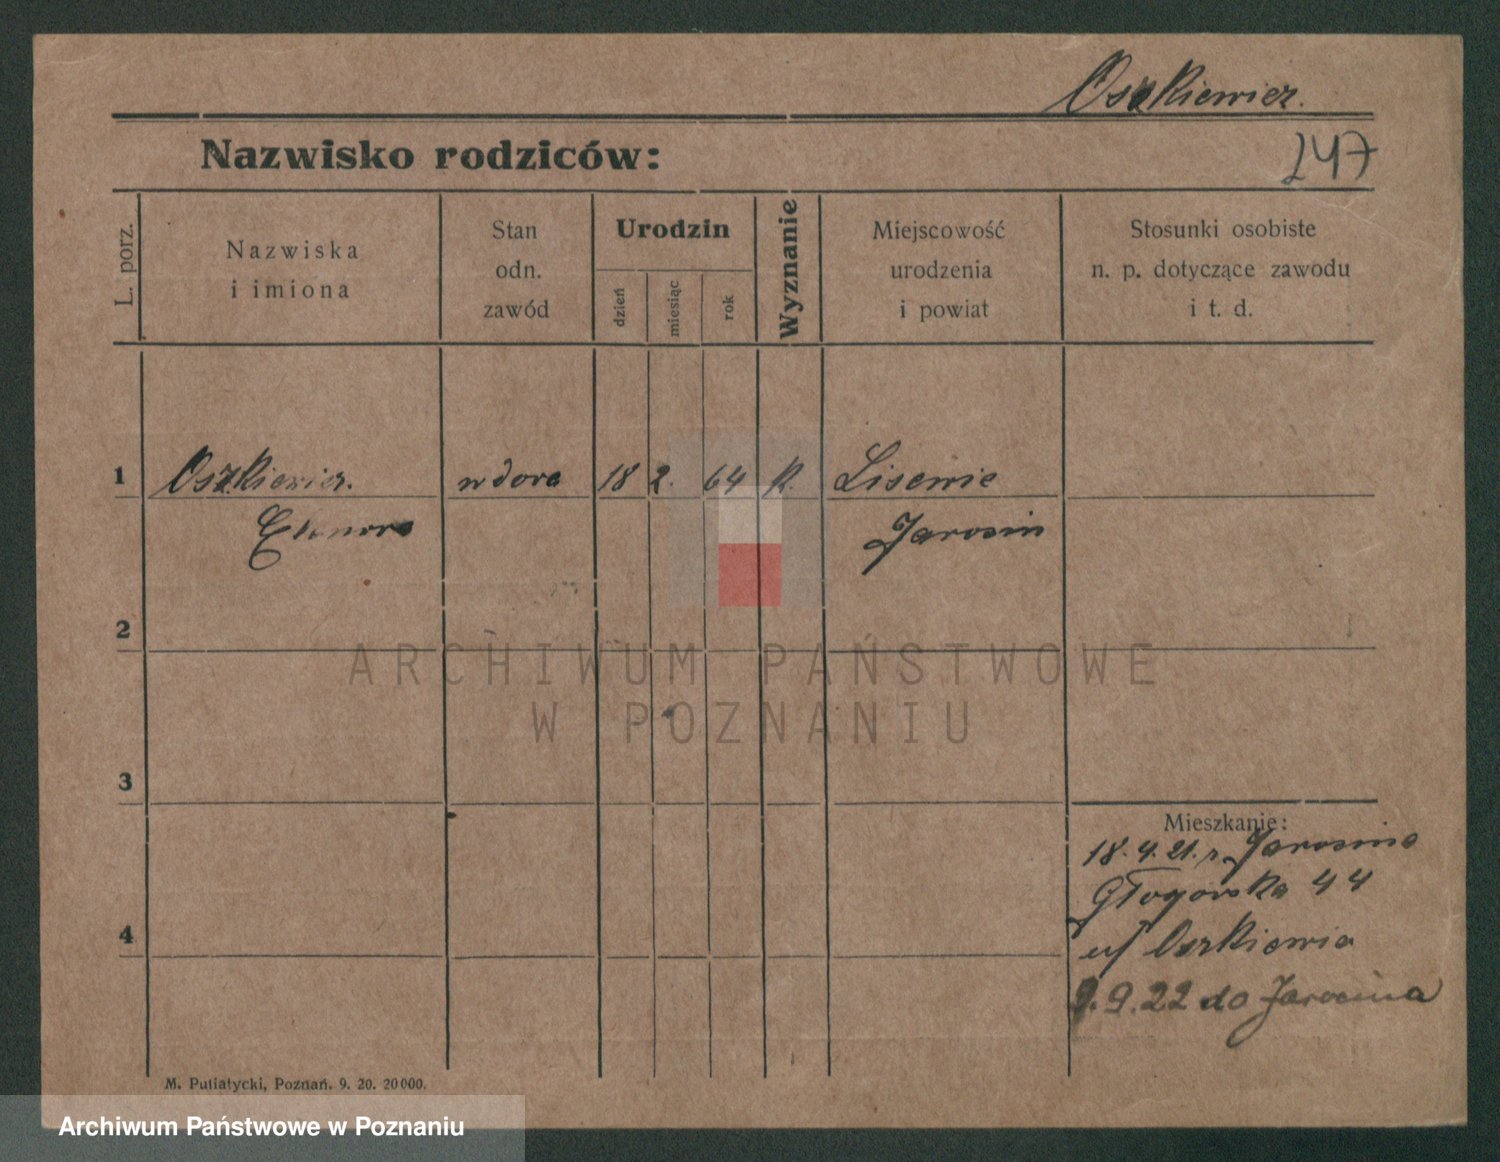 Oszkiewicz.
Nazwisko rodziców:
247
L. porz.
Nazwiska
i imiona
Stan
odn.
zawód
Urodzin
dzień
miesiąc
rok
Wyznanie
Miejscowość
urodzenia
i powiat
Stosunki osobiste
n. p. dotyczące zawodu
i t. d.
1 Oszkiewicz. wdowa 18 2. 64 k.
Jarocin
2
ARCHIWUM PAŃSTWOWE
W POZNANIU
3
Mieszkanie:
18.4.21. z Jarocina
Głogowska 44
4
9.22 do Jarocina
M. Putiatycki, Poznań. 9. 20. 20000.
Archiwum Państwowe w Poznaniu